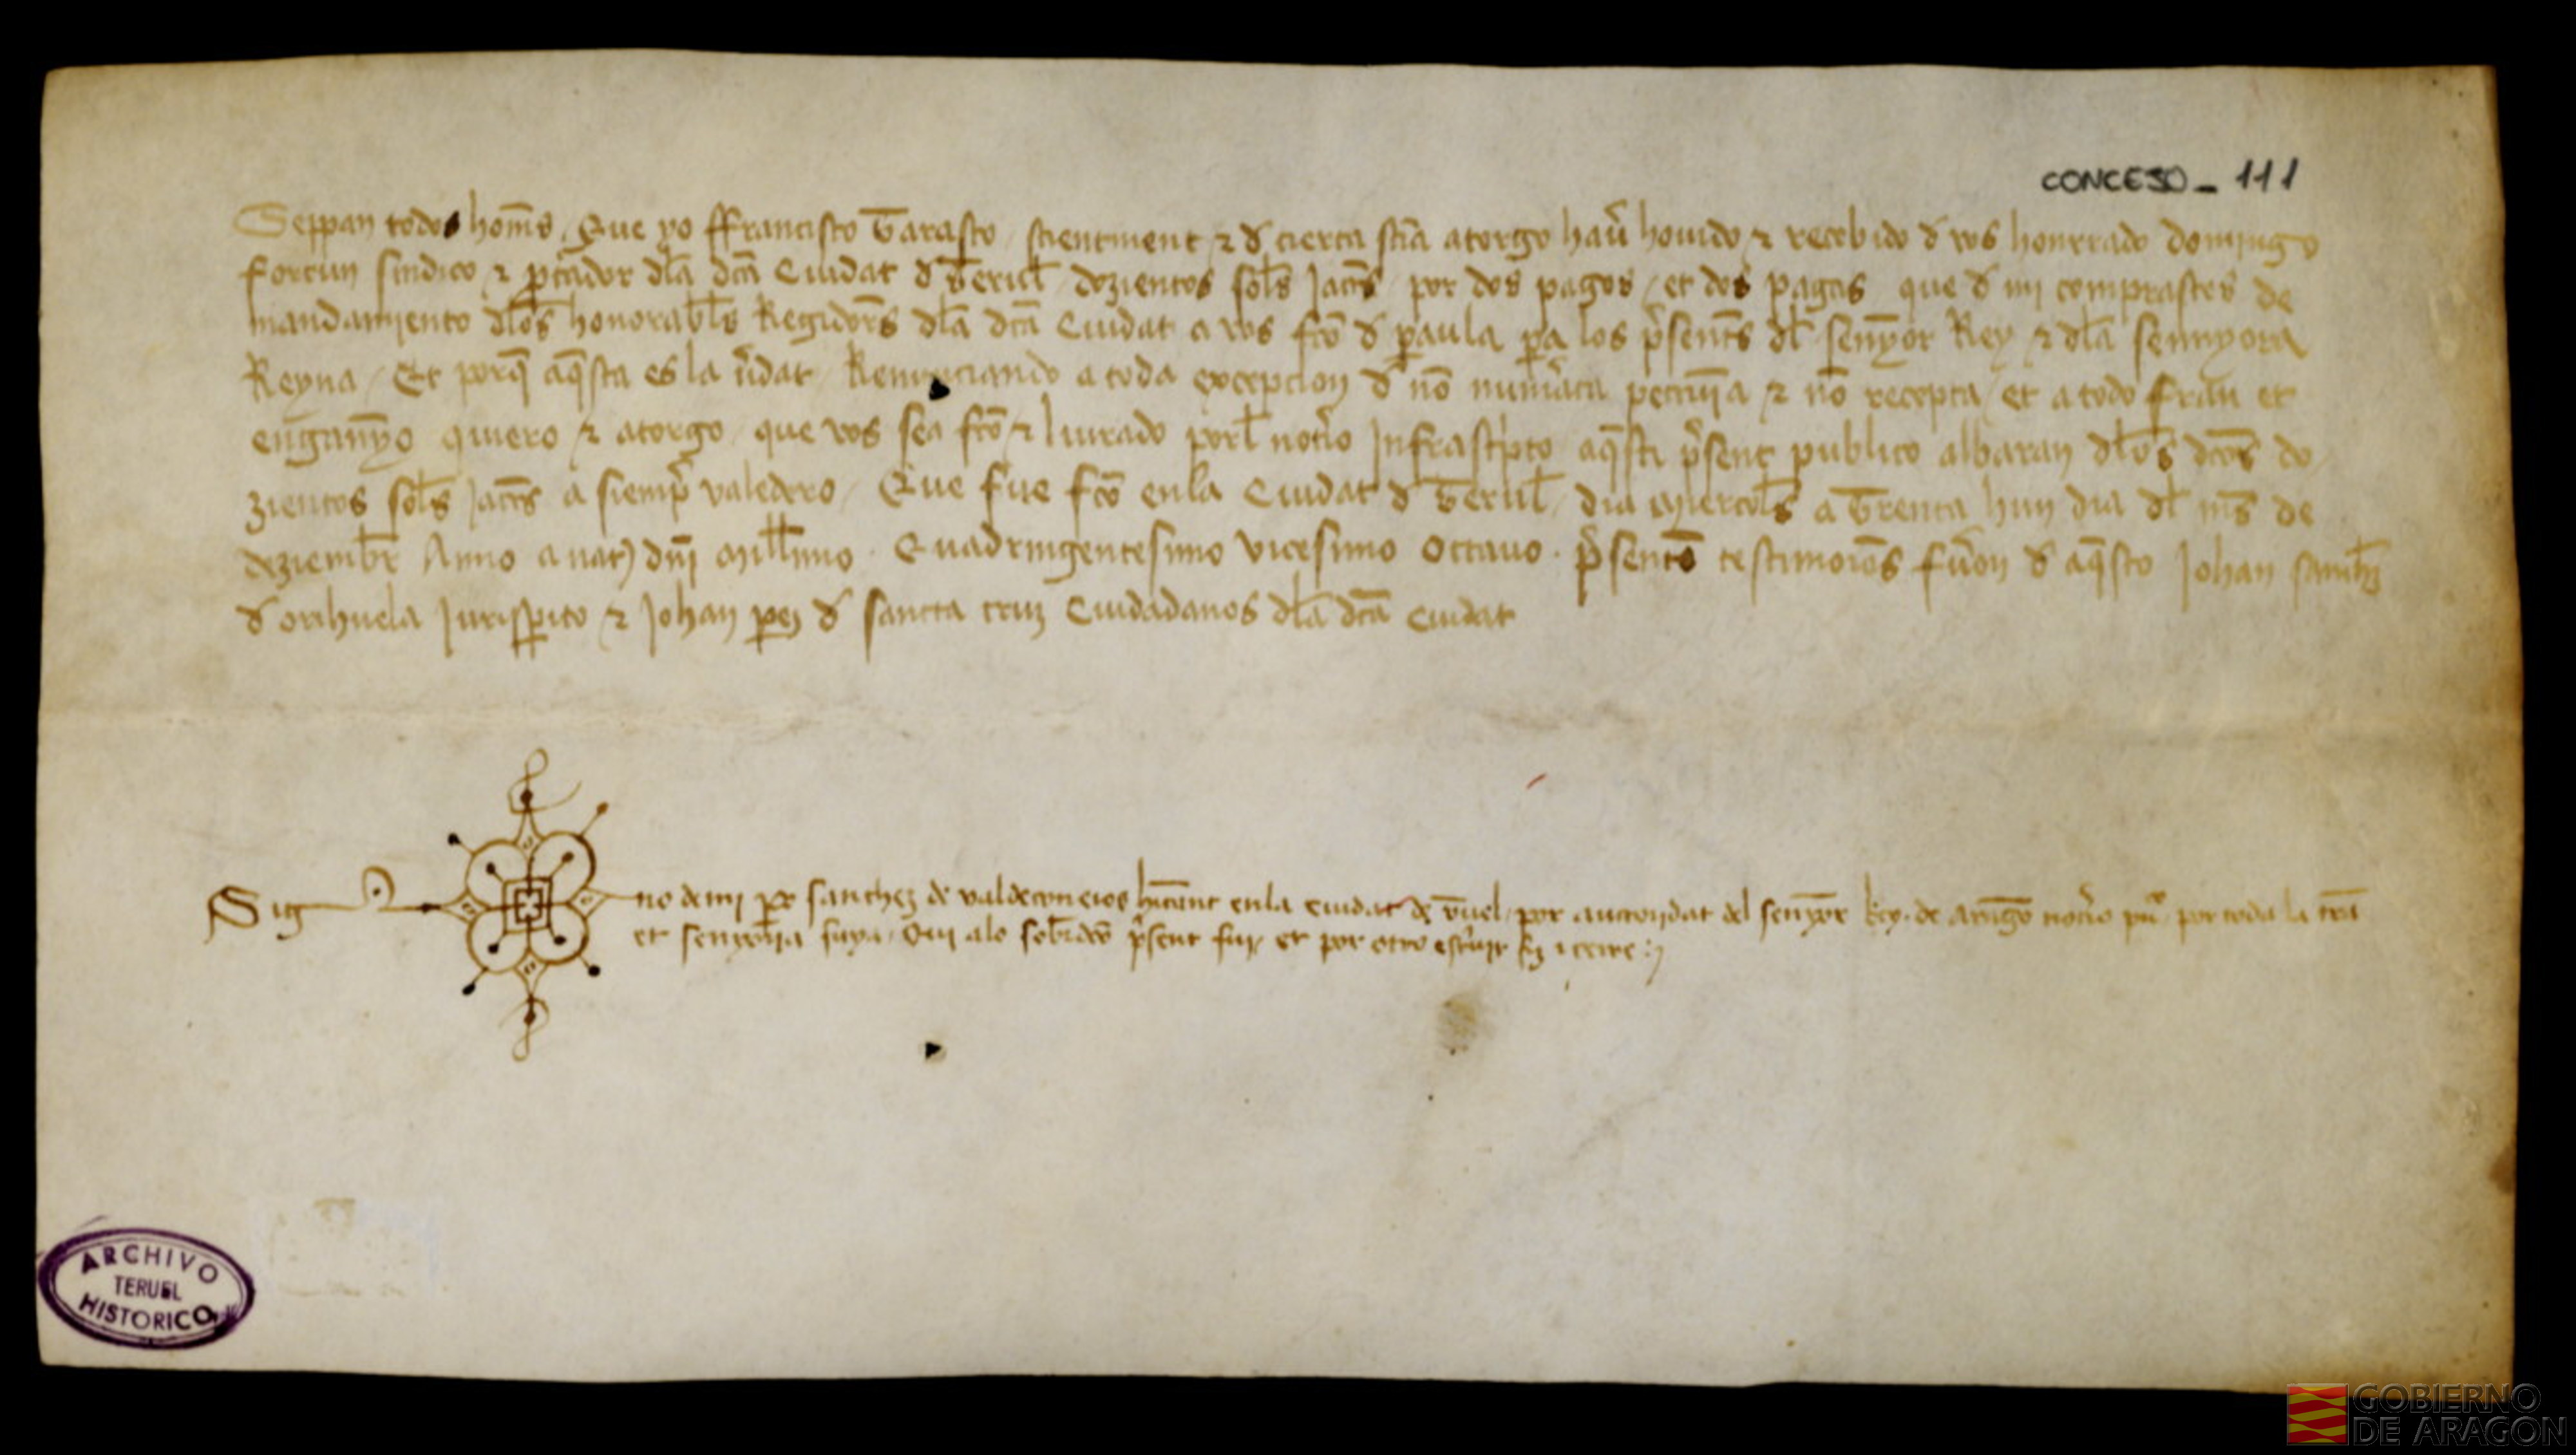 CONCEJO_111
Seppan todos hom̄s, Que yo ffrancisco Tarasco, scientment ⁊ đ cierta scīa atorgo hau̓ houido ⁊ recebido đ vos honrrado domingo
fortun sindico ⁊ p̱cuador dl̄a dc̄a Ciudat đ Teruel̄ dozientos sol̄s Jacc̄s por dos pagos, et dos pagas que đ mi comprastes de
mandamiento dl̄os honorabl̄s Regidor̄s dl̄a dc̄a Ciudat a vos fc̄o đ paula p̱a los p̓sent̄s dl̄ senȳor Rey ⁊ dl̄a sennyora
Reyna, Et porq̄ aq̄sta es la u̓dat, Renunciando a toda excepcion đ nō num̓ata pecun̄ia ⁊ nō recepta, et a todo frau et
engan̄yo quiero ⁊ atorgo, que vos sea fc̄o ⁊ liurado porl̄ not̓io Infrasc̓pto aq̄sti p̓sent publico albaran dl̄os dc̄os do
zientos sol̄s Jacc̄s a siemp̓ valedero, Que fue fc̄o en la Ciudat đ Teruel̄, dia mjercol̄s a Trenta hun dia dl̄ mēs de
deziembr̄ Anno a nat) dn̄i mill̄imo. Quadringentesimo vicesimo Octauo. p̓sent̄s testimoīos fu̓on đ aq̄sto Johan sanch̄z
đ orihuela Jurisp̱ito ⁊ Johan p̱ez đ sancta cruz Ciudadanos dl̄a dc̄a Ciudat
Sig no de mj p̱o sanchez de valdeconeios hīcant en la ciudat de T̄uel, por auctoridat del senȳor Rey. de araḡo not̓io pu͞c por toda la trr̄a
et senyor̄ia suya, Qui a lo sobr̄dc̄o p̓sent fuj, et por otro esc̓uir fiz ⁊ cerre :~
ARCHIVO
TERUEL
HISTORICO
GOBIERNO
DE ARAGON